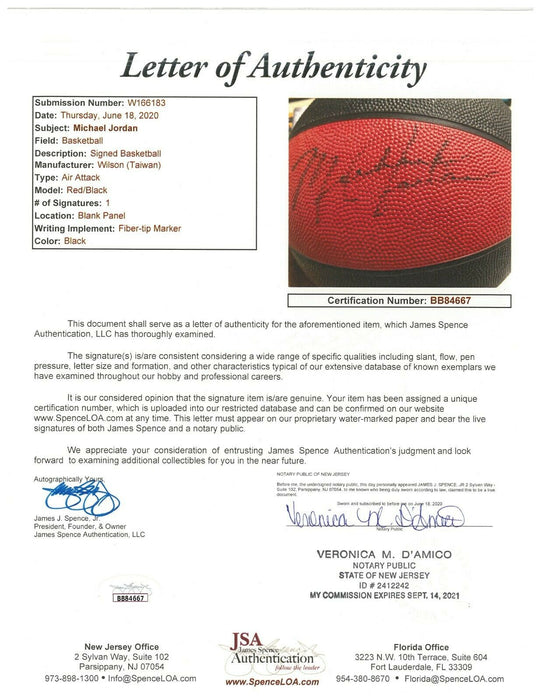 Letter of Authenticity
Submission Number: W166183
Date: Thursday, June 18, 2020
Subject: Michael Jordan
Field: Basketball
Description: Signed Basketball
Manufacturer: Wilson (Taiwan)
Type: Air Attack
Model: Red/Black
# of Signatures: 1
Location: Blank Panel
Writing Implement: Fiber-tip Marker
Color: Black
Michael
Jordan
Certification Number: BB84667
This document shall serve as a letter of authenticity for the aforementioned item, which James Spence
Authentication, LLC has thoroughly examined.
The signature(s) is/are consistent considering a wide range of specific qualities including slant, flow, pen
pressure, letter size and formation, and other characteristics typical of our extensive database of known exemplars we
have examined throughout our hobby and professional careers.
It is our considered opinion that the signature item is/are genuine. Your item has been assigned a unique
certification number, which is uploaded into our restricted database and can be confirmed on our website
www.SpenceLOA.com at any time. This letter must appear on our proprietary water-marked paper and bear the live
signatures of both James Spence and a notary public.
We appreciate your consideration of entrusting James Spence Authentication's judgment and look
forward to examining additional collectibles for you in the near future.
Autographically Yours,
James J. Spence, Jr.
President, Founder, & Owner
James Spence Authentication, LLC
NOTARY PUBLIC OF NEW JERSEY
Before me, the undersigned notary public, this day personally appeared JAMES J. SPENCE, JR 2 Sylvan Way -
Suite 102, Parsippany, NJ 07054, to me known who being duly sworn according to law, claimed this to be a true
document.
Sworn and subscribed to before me on June 18, 2020
Veronica M. D'Amico
Notary Public
VERONICA M. D'AMICO
NOTARY PUBLIC
STATE OF NEW JERSEY
ID # 2412242
MY COMMISSION EXPIRES SEPT. 14, 2021
BB84667
New Jersey Office
2 Sylvan Way, Suite 102
Parsippany, NJ 07054
973-898-1300 • Info@SpenceLOA.com
JSA
James Spence
Authentication
follow the leader
www.SpenceLOA.com
Florida Office
3223 N.W. 10th Terrace, Suite 604
Fort Lauderdale, FL 33309
954-380-8670 • Florida@SpenceLOA.com